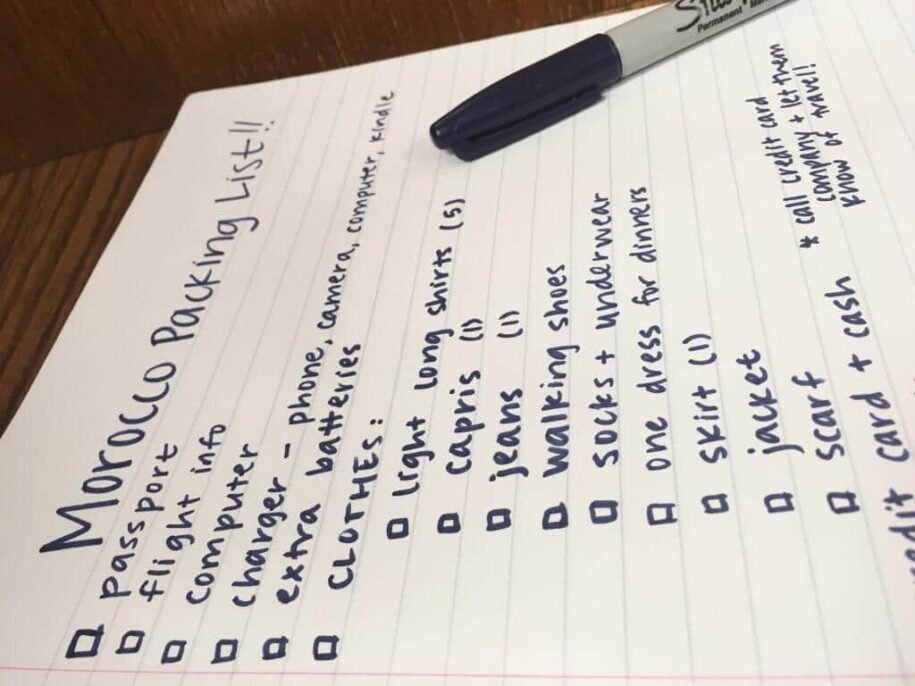 Morocco Packing List!!
passport
flight info
computer
charger – phone, camera, computer, kindle
extra batteries
CLOTHES:
light long shirts (5)
capris (1)
jeans (1)
walking shoes
socks + underwear
one dress for dinners
skirt (1)
jacket
scarf
card + cash
* call credit card
company + let them
know of travel!
Permanent